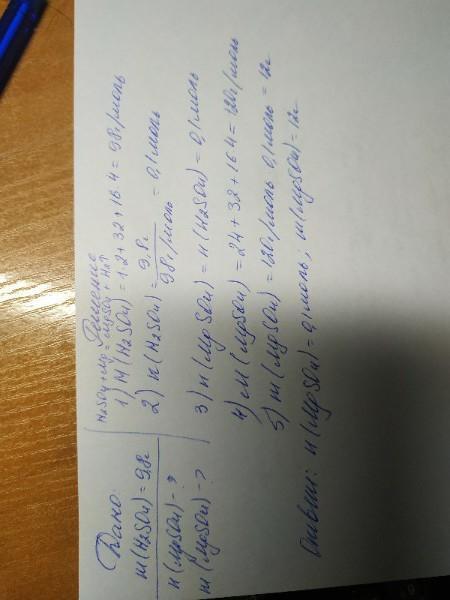 Дано:
m(H2SO4) = 9,8г
n(MgSO4) - ?
m(MgSO4) - ?
Решение
H2SO4 + Mg = MgSO4 + H2↑
1) M(H2SO4) = 1·2 + 32 + 16·4 = 98г/моль
2) n(H2SO4) = 9,8г
98г/моль = 0,1моль
3) n(MgSO4) = n(H2SO4) = 0,1моль
4) M(MgSO4) = 24 + 32 + 16·4 = 120г/моль
5) m(MgSO4) = 120г/моль · 0,1моль = 12г
Ответ: n(MgSO4) = 0,1моль; m(MgSO4) = 12г